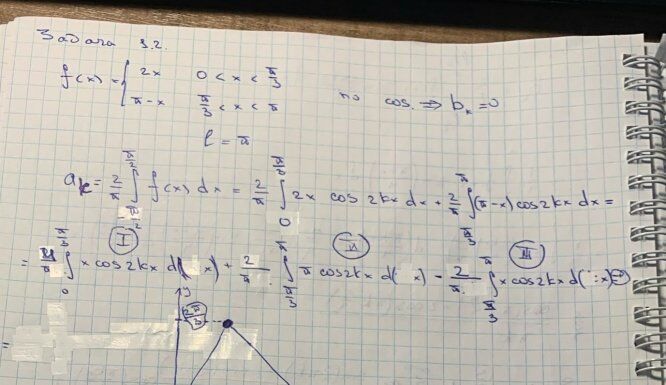 Задача 3.2.
f(x) = { 2x 0 < x < π/3
π-x π/3 < x < π
по cos. ⇒ bₖ = 0
l = π
aₖ = 2/π ∫ f(x) dx = 2/π ∫₀^(π/3) 2x cos 2kx dx + 2/π ∫_(π/3)^π (π-x) cos 2kx dx =
I II III
= 4/π ∫₀^(π/3) x cos 2kx d( x) + 2/π ∫_(π/3)^π π cos 2kx d( x) - 2/π ∫_(π/3)^π x cos 2kx d( x) =
y
2π/3
=